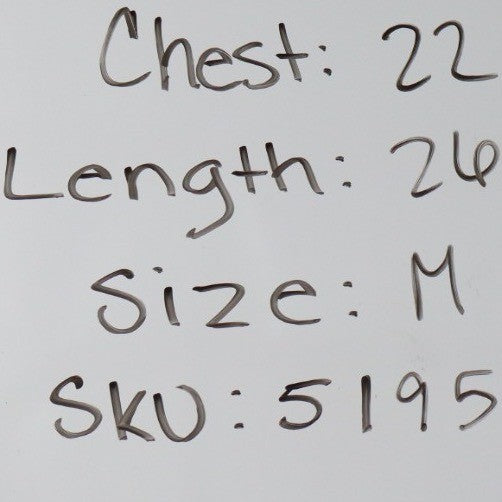 Chest: 22
Length: 26
Size: M
SKU: 5195